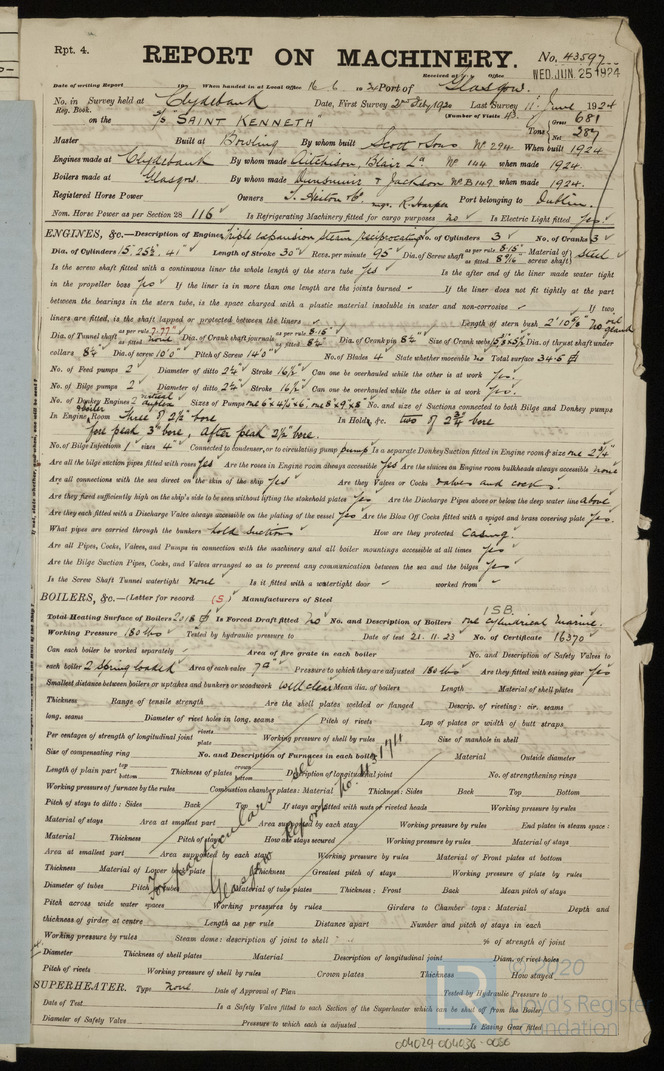 Rpt. 4.
REPORT ON MACHINERY.
No. 43597
WED. JUN. 25 1924
Received at Office
Date of writing Report 192 When handed in at Local Office 16. 6. 1924 Port of Glasgow.
No. in Survey held at Clydebank Date, First Survey 2nd Feby 1920 Last Survey 11th June 1924
Reg. Book. (Number of Visits 43.
on the S/S "SAINT KENNETH" Tons Gross 681 Net 287
Master Built at Bowling By whom built Scott & Sons No 294. When built 1924
Engines made at Clydebank By whom made Aitchison, Blair Ld No 144 when made 1924.
Boilers made at Glasgow. By whom made Dunsmuir & Jackson No B149 when made 1924.
Registered Horse Power Owners Port belonging to Dublin.
Nom. Horse Power as per Section 28 116 Is Refrigerating Machinery fitted for cargo purposes no Is Electric Light fitted Yes.
ENGINES, &c.—Description of Engines Triple expansion, Steam reciprocating No. of Cylinders 3 No. of Cranks 3
Dia. of Cylinders 15", 25½", 41" Length of Stroke 30" Revs. per minute 95 Dia. of Screw shaft as per rule 8.15" as fitted 8 9/16" Material of screw shaft Steel
Is the screw shaft fitted with a continuous liner the whole length of the stern tube Yes Is the after end of the liner made water tight
in the propeller boss Yes If the liner is in more than one length are the joints burned If the liner does not fit tightly at the part
between the bearings in the stern tube, is the space charged with a plastic material insoluble in water and non-corrosive If two
liners are fitted, is the shaft lapped or protected between the liners Length of stern bush 2'10⅝" no oil gland
Dia. of Tunnel shaft as per rule 7.77" as fitted none Dia. of Crank shaft journals as per rule 8.15" as fitted 8¼" Dia. of Crank pin 8¼" Size of Crank webs Dia. of thrust shaft under
collars 8¼" Dia. of screw 10'0" Pitch of Screw 14'0" No. of Blades 4 State whether moveable no Total surface 34.5
No. of Feed pumps 2 Diameter of ditto 2¼" Stroke 16½" Can one be overhauled while the other is at work Yes.
No. of Bilge pumps 2 Diameter of ditto 2¼" Stroke 16½" Can one be overhauled while the other is at work Yes.
No. of Donkey Engines 2 Sizes of Pumps one 6"x4¼"x6", one 8"x9"x8" No. and size of Suctions connected to both Bilge and Donkey pumps
In Engine Room & boiler Three of 2½" bore In Holds, &c. two of 2¾" bore
Fore peak 3" bore, After peak 2½" bore.
No. of Bilge Injections 1 sizes 4" Connected to condenser, or to circulating pump pump Is a separate Donkey Suction fitted in Engine room & size one 2¾"
Are all the bilge suction pipes fitted with roses Yes Are the roses in Engine room always accessible Yes Are the sluices on Engine room bulkheads always accessible none
Are all connections with the sea direct on the skin of the ship Yes Are they Valves or Cocks valves and cocks.
Are they fixed sufficiently high on the ship's side to be seen without lifting the stokehold plates Yes Are the Discharge Pipes above or below the deep water line above
Are they each fitted with a Discharge Valve always accessible on the plating of the vessel Yes Are the Blow Off Cocks fitted with a spigot and brass covering plate Yes.
What pipes are carried through the bunkers hold suctions How are they protected Casing.
Are all Pipes, Cocks, Valves, and Pumps in connection with the machinery and all boiler mountings accessible at all times Yes
Are the Bilge Suction Pipes, Cocks, and Valves arranged so as to prevent any communication between the sea and the bilges Yes
Is the Screw Shaft Tunnel watertight none Is it fitted with a watertight door worked from
BOILERS, &c.—(Letter for record (S) Manufacturers of Steel
Total Heating Surface of Boilers 2018 Is Forced Draft fitted no No. and Description of Boilers one cylindrical marine. 1 S.B.
Working Pressure 180 lbs Tested by hydraulic pressure to Date of test 21.11.23 No. of Certificate 16370
Can each boiler be worked separately Area of fire grate in each boiler No. and Description of Safety Valves to
each boiler 2 Spring loaded Area of each valve 7 Pressure to which they are adjusted 180 lbs Are they fitted with easing gear Yes
Smallest distance between boilers or uptakes and bunkers or woodwork Well clear Mean dia. of boilers Length Material of shell plates
Thickness Range of tensile strength Are the shell plates welded or flanged Descrip. of riveting: cir. seams
long. seams Diameter of rivet holes in long. seams Pitch of rivets Lap of plates or width of butt straps
Per centages of strength of longitudinal joint rivets plate Working pressure of shell by rules Size of manhole in shell
Size of compensating ring No. and Description of Furnaces in each boiler Material Outside diameter
Length of plain part top bottom Thickness of plates crown bottom Description of longitudinal joint No. of strengthening rings
Working pressure of furnace by the rules Combustion chamber plates: Material Thickness: Sides Back Top Bottom
Pitch of stays to ditto: Sides Back Top If stays are fitted with nuts or riveted heads Working pressure by rules
Material of stays Area at smallest part Area supported by each stay Working pressure by rules End plates in steam space:
Material Thickness Pitch of stays How are stays secured Working pressure by rules Material of stays
Area at smallest part Area supported by each stay Working pressure by rules Material of Front plates at bottom
Thickness Material of Lower back plate Thickness Greatest pitch of stays Working pressure of plate by rules
Diameter of tubes Pitch of tubes Material of tube plates Thickness: Front Back Mean pitch of stays
Pitch across wide water spaces Working pressures by rules Girders to Chamber tops: Material Depth and
thickness of girder at centre Length as per rule Distance apart Number and pitch of stays in each
Working pressure by rules Steam dome: description of joint to shell % of strength of joint
Diameter Thickness of shell plates Material Description of longitudinal joint Diam. of rivet holes
Pitch of rivets Working pressure of shell by rules Crown plates Thickness How stayed
For particulars see
Glasgow Report No. 43171
SUPERHEATER. Type none Date of Approval of Plan Tested by Hydraulic Pressure to
Date of Test Is a Safety Valve fitted to each Section of the Superheater which can be shut off from the Boiler
Diameter of Safety Valve Pressure to which each is adjusted Is Easing Gear fitted
© 2020
Lloyd's Register
Foundation
004029-004036-0056